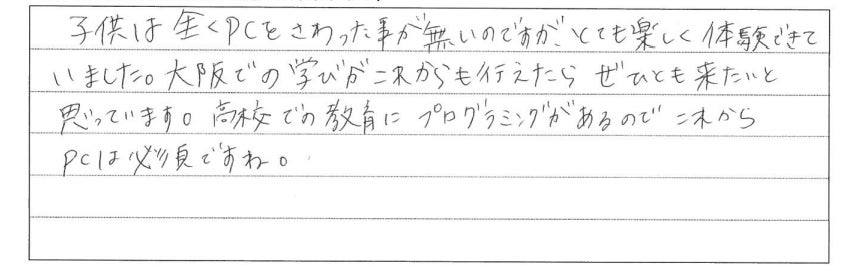 子供は全くPCをさわった事が無いのですが、とても楽しく体験できて
いました。大阪での学びがこれからも行えたら ぜひとも来たいと
思っています。高校での教育に プログラミングがあるので これから
PCは必須ですね。